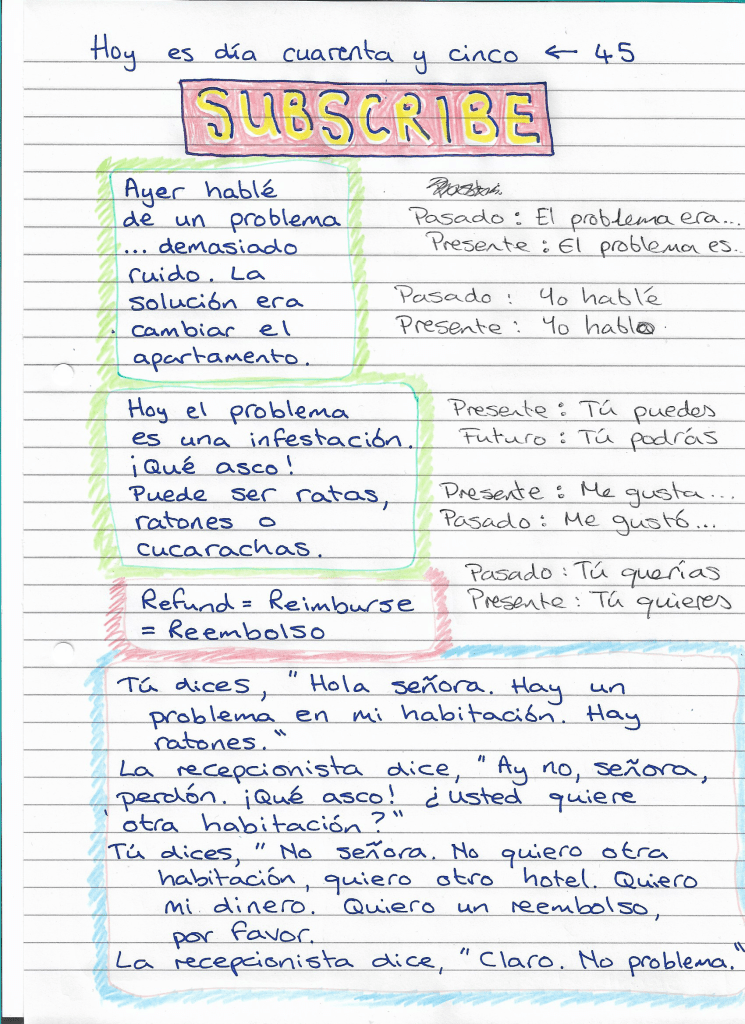 Hoy es día cuarenta y cinco ← 45
SUBSCRIBE
Ayer hablé
de un problema
... demasiado
ruido. La
solución era
cambiar el
apartamento.
Pasado : El problema era...
Presente : El problema es..
Pasado : Yo hablé
Presente : Yo hablo
Hoy el problema
es una infestación.
¡Qué asco!
Puede ser ratas,
ratones o
cucarachas.
Presente : Tú puedes
Futuro : Tú podrás
Presente : Me gusta...
Pasado : Me gustó...
Pasado : Tú querías
Presente : Tú quieres
Refund = Reimburse
= Reembolso
Tú dices, "Hola señora. Hay un
problema en mi habitación. Hay
ratones."
La recepcionista dice, "Ay no, señora,
perdón. ¡Qué asco! ¿Usted quiere
otra habitación?"
Tú dices, "No señora. No quiero otra
habitación, quiero otro hotel. Quiero
mi dinero. Quiero un reembolso,
por favor.
La recepcionista dice, "Claro. No problema."